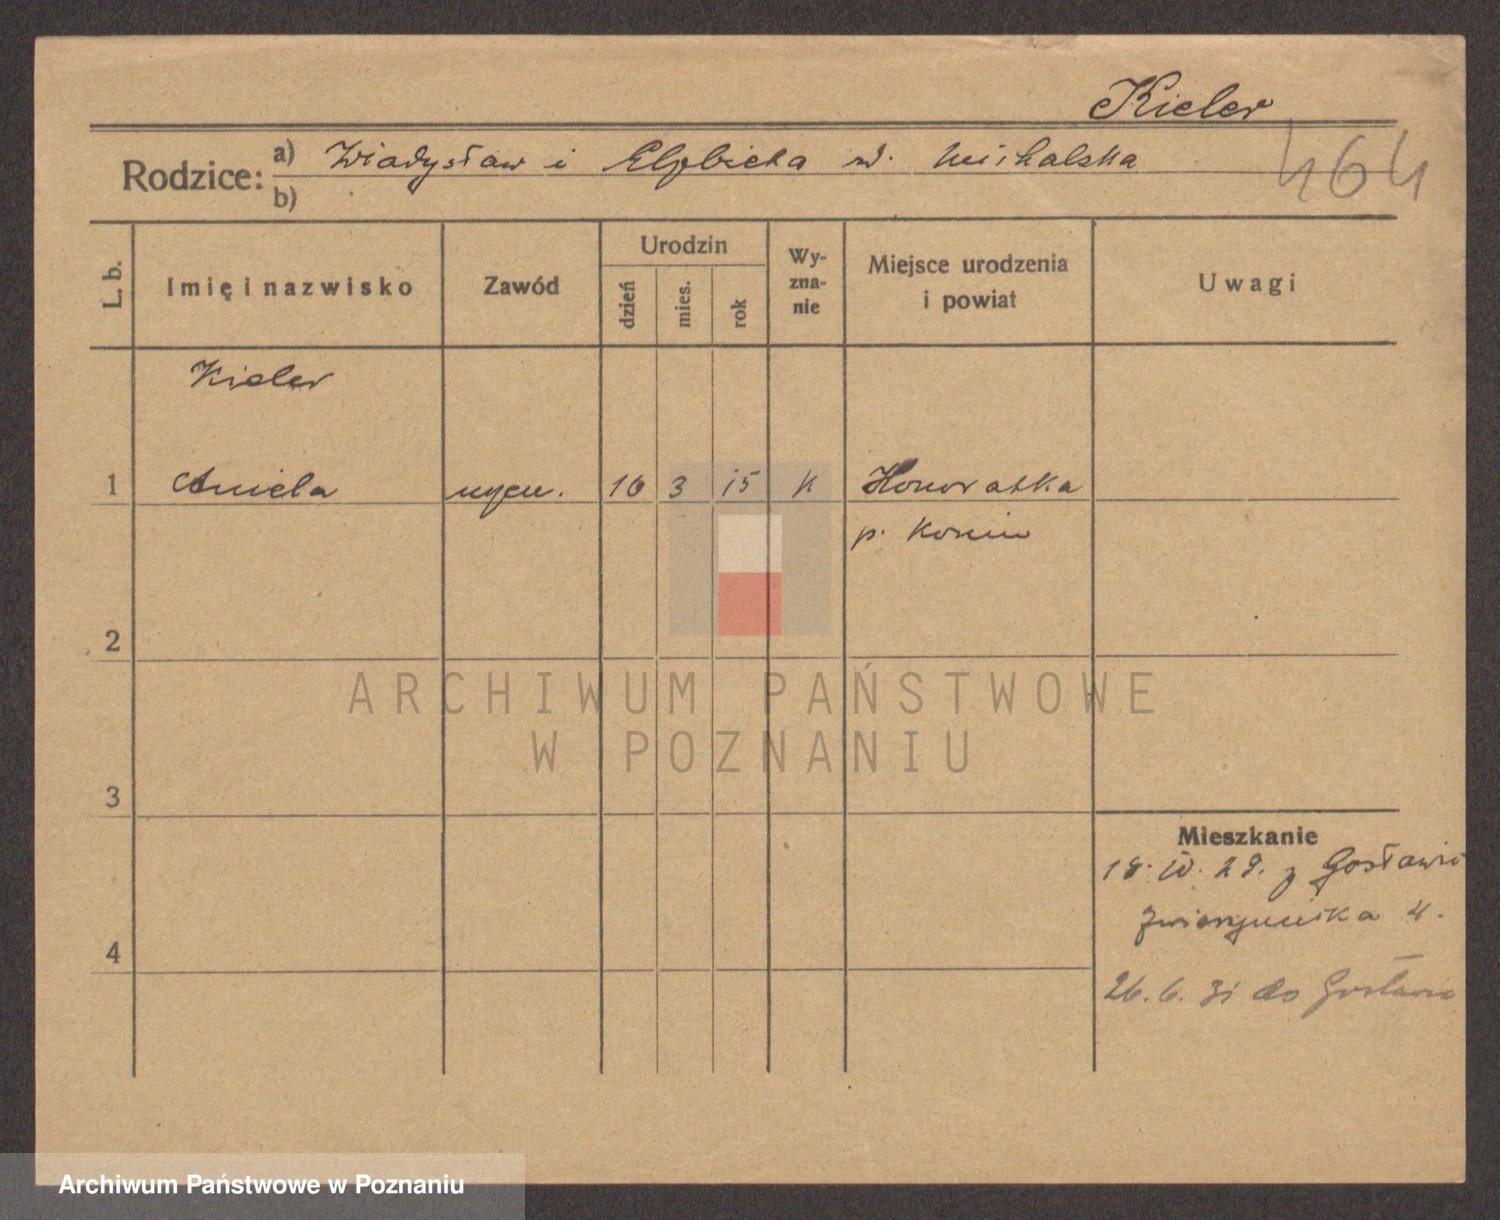 Kieler
464
Rodzice: a) Władysław i Elżbieta n. Michalska
b)
L. b.
Imię i nazwisko
Zawód
Urodzin
dzień
mies.
rok
Wy-
zna-
nie
Miejsce urodzenia
i powiat
Uwagi
Kieler
1 Aniela uczen. 10 3 15 k Honoratka
p. Konin
2
3
4
Mieszkanie
18. IV. 29. z Gosławic
4.
26. 6. 31 do Gosławic
ARCHIWUM PAŃSTWOWE
W POZNANIU
Archiwum Państwowe w Poznaniu